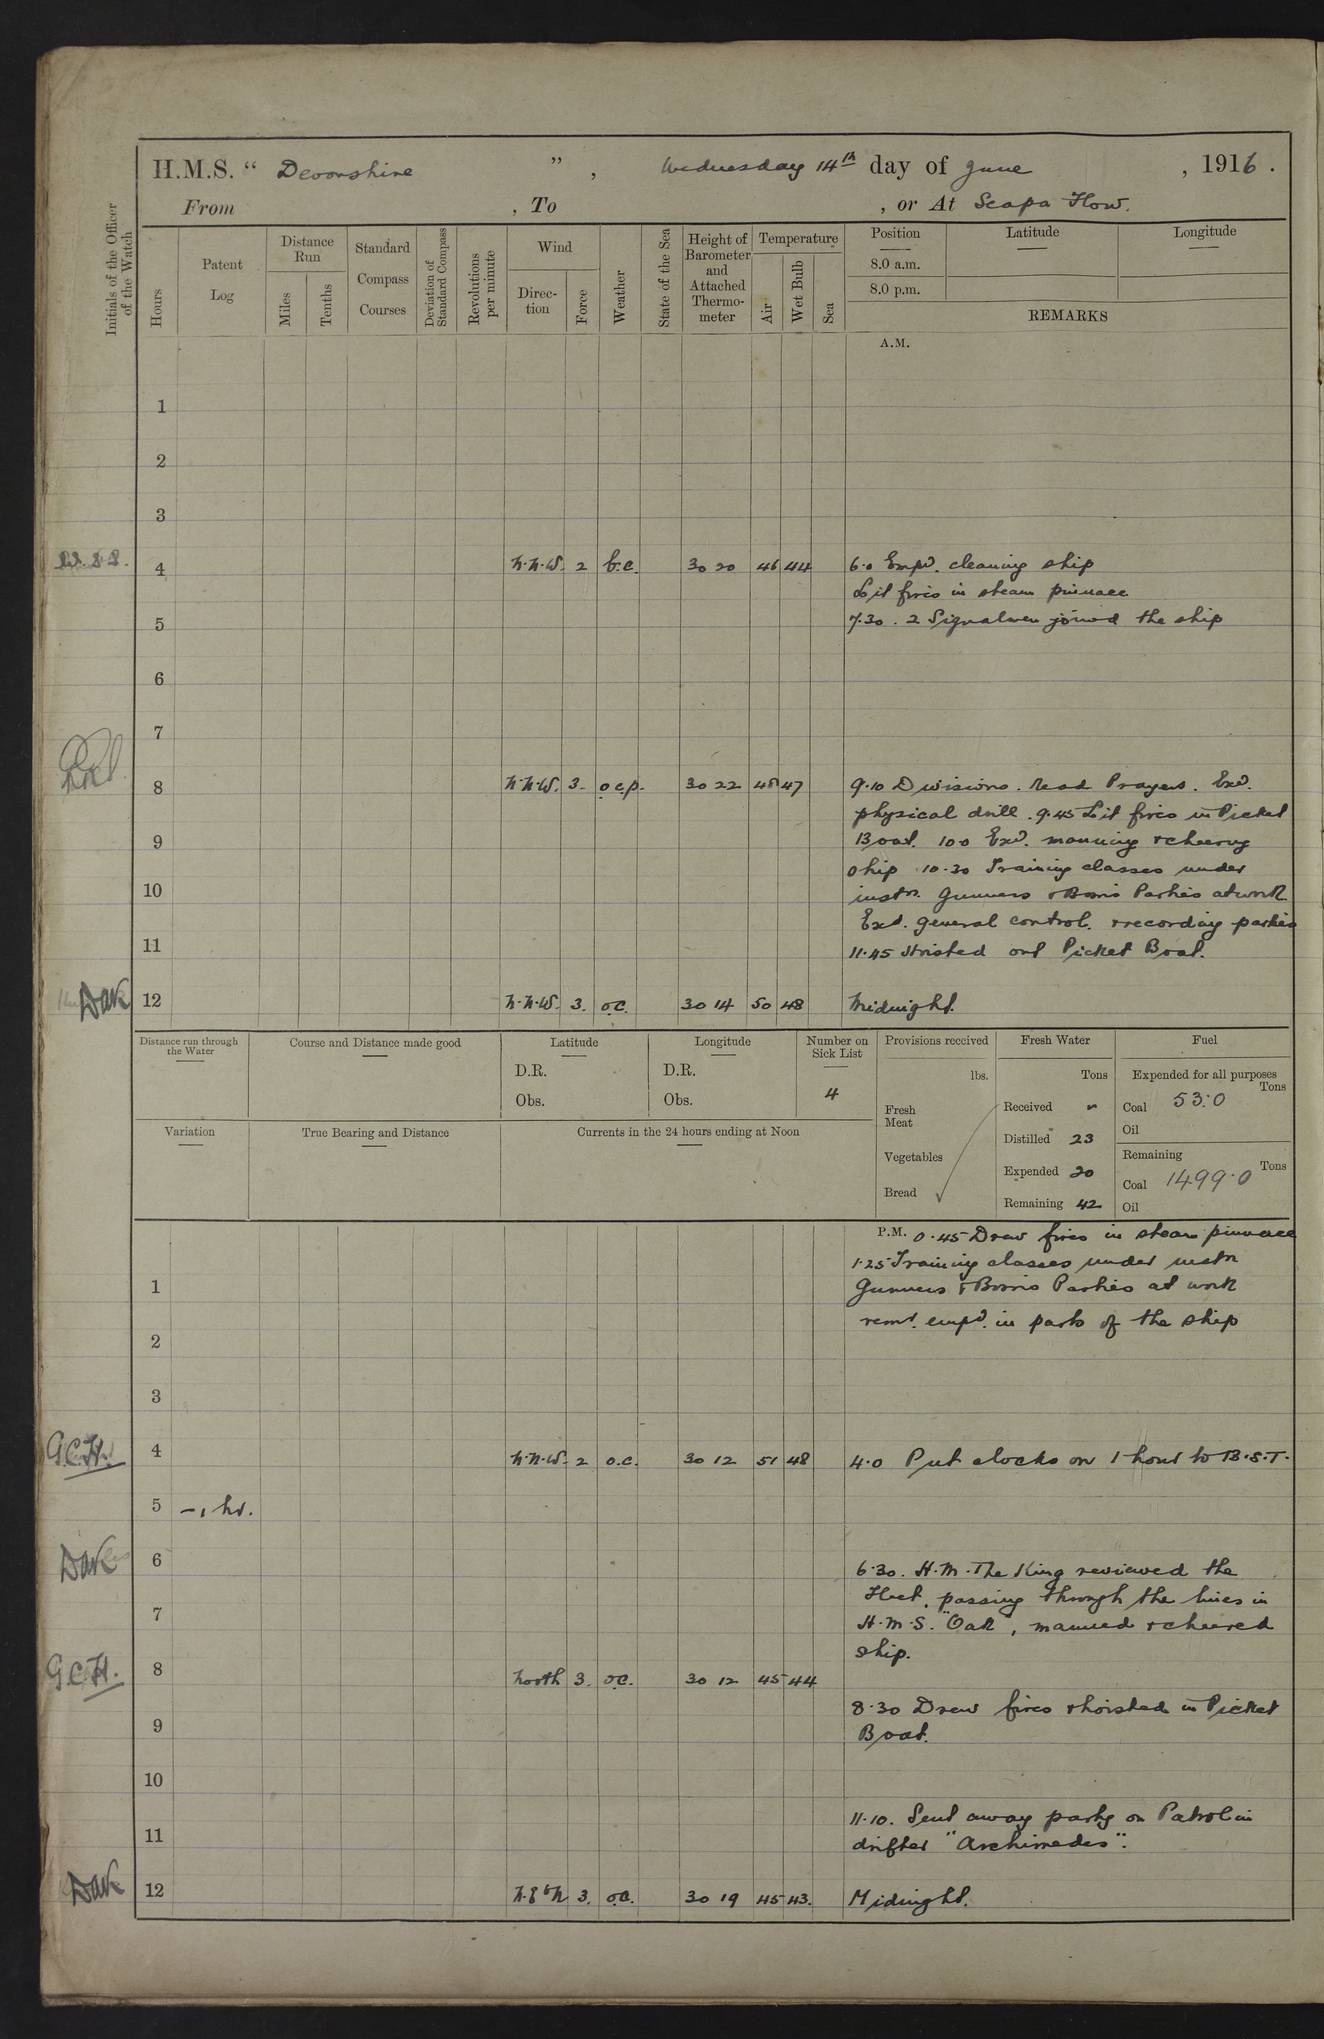 H.M.S. “ Devonshire ” , Wednesday 14th day of June , 1916 .
From , To , or At Scapa Flow.
Initials of the Officer of the Watch
Hours
Patent Log
Distance Run
Miles
Tenths
Standard Compass Courses
Deviation of Standard Compass
Revolutions per minute
Wind
Direc-tion
Force
Weather
State of the Sea
Height of Barometer and Attached Thermo-meter
Temperature
Air
Wet Bulb
Sea
Position Latitude Longitude
8.0 a.m.
8.0 p.m.
REMARKS
A.M.
1
2
3
4 N.N.W. 2 b.c. 30 20 46 44 6.0 Empd. cleaning ship
Lit fires in steam pinnace
5 7.30 . 2 Signalmen joined the ship
6
7
8 N.N.W. 3. o.c.p. 30 22 48 47 9.10 Divisions. Read Prayers. Exd.
physical drill. 9.45 Lit fires in Picket
9 Boat. 10.0 Exd. manning & cheering
ship 10.30 Training classes under
10 instn. Gunners & Bosns Parties at work
Exd. general control. & recording parties
11 11.45 Hoisted out Picket Boat.
DAK 12 N.N.W. 3. o.c. 30 14 50 48 Midnight.
Distance run through the Water
Course and Distance made good
Latitude
D.R.
Obs.
Longitude
D.R.
Obs.
Number on Sick List
4
Provisions received
lbs.
Fresh Meat
Vegetables
Bread
Fresh Water
Tons
Received -
Distilled 23
Expended 20
Remaining 42
Fuel
Expended for all purposes
Tons
Coal 53.0
Oil
Remaining
Tons
Coal 1499.0
Oil
Variation
True Bearing and Distance
Currents in the 24 hours ending at Noon
P.M. 0.45 Drew fires in steam pinnace
1.25 Training classes under instn
1 Gunners & Bosns Parties at work
remr. empd. in parts of the ship
2
3
G.C.H. 4 N.N.W. 2 o.c. 30 12 51 48 4.0 Put clocks on 1 hour to B.S.T.
5 -1 hr.
DAK 6 6.30. H.M. The King reviewed the
Fleet, passing through the lines in
7 H.M.S. "Oak", manned & cheered
ship.
G.C.H. 8 North 3. o.c. 30 12 45 44
8.30 Drew fires & hoisted in Picket
9 Boat.
10
11.10. Sent away party on Patrol in
11 drifter "Archimedes".
DAK 12 N.E b N 3. o.c. 30 19 45 43. Midnight.